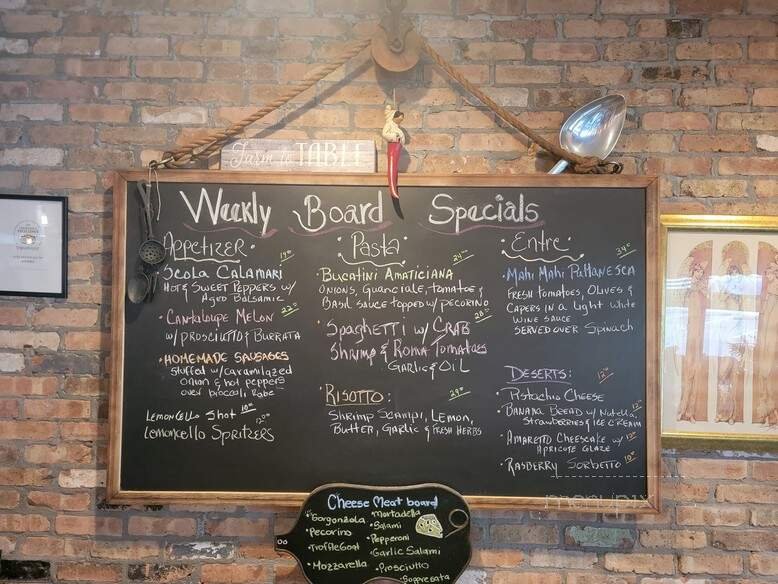 Farm to TABLE
Weekly Board Specials
Appetizer
19⁰⁰
Scola Calamari
Hot & Sweet Peppers w/
Aged Balsamic
22⁰⁰
Cantaloupe Melon
w/ Prosciutto & Burrata
Homemade Sausages
Stuffed w/ caramilazed
onion & hot peppers
over broccoli Rabe
LemonCello Shot 10⁰⁰
Lemoncello Spritzers 12⁰⁰
Pasta
24⁰⁰
Bucatini Amaticiana
Onions, Guanciale, tomatoe &
Basil sauce topped w/ pecorino
28⁰⁰
Spaghetti w/ Crab
Shrimp & Roma Tomatoes
Garlic & Oil
Risotto: 29⁰⁰
Shrimp Scampi, Lemon,
Butter, Garlic & Fresh Herbs
Entre
34⁰⁰
Mahi Mahi Puttanesca
Fresh tomatoes, Olives &
Capers in a light white
wine sauce
served over Spinach
Deserts:
Pistachio Cheese 12⁰⁰
Banana Bread w/ Nutella, 12⁰⁰
Strawberries & Ice Cream
Amaretto Cheescake w/ 12⁰⁰
Apricote Glaze
Rasberry Sorbetto 10⁰⁰
Cheese Meat board
Gorgonzola
Pecorino
Truffle Goat
Mozzarella
Mortadella
Salami
Pepperoni
Garlic Salami
Prosciutto
Sopresata
menupix